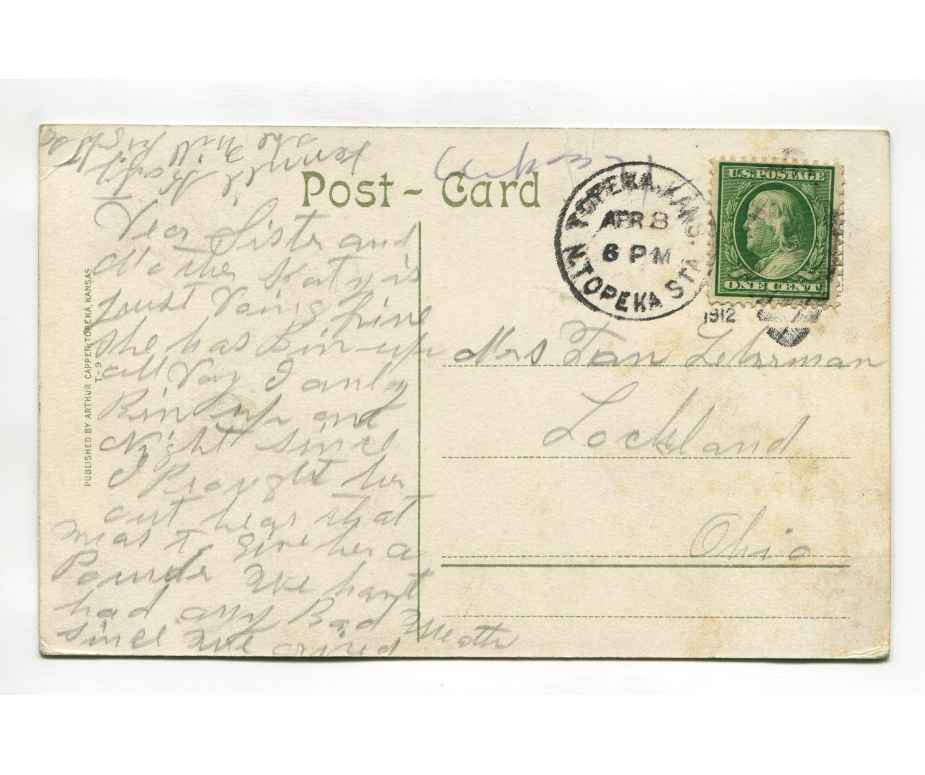 Post - Card
Dear Sister and
Mother Katy is
just Doing fine
she has Bin up
all Day I only
Bin up one
Night since
I Brought her
out hear that
was I give her a
Pounde We hant
had any Bad Weathr
since We arived
Mrs Lehrman
Lockland
Ohio
TOPEKA, KANS.
APR 8
6 PM
N. TOPEKA STA.
1912
U.S. POSTAGE
ONE CENT
PUBLISHED BY ARTHUR CAPPER, TOPEKA, KANSAS
T-9